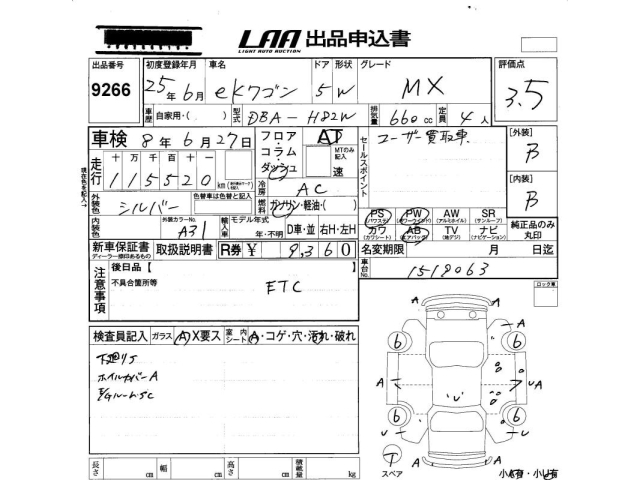 LAA 出品申込書
LIGHT AUTO AUCTION
出品番号 9266
初度登録年月 車名 ドア 形状 グレード 評価点
25年6月 eKワゴン 5 W MX 3.5
車歴 自家用・( ) 型式 DBA-H82W 排気量 660cc 定員 4人
車検 8年6月27日
フロア・コラム・ダッシュ AT MTのみ記入 速
セールスポイント ユーザー買取車
[外装] B
[内装] B
走行 十 万 千 百 十
115520 km
冷房 AC
燃料 ガソリン・軽油・( )
外装色 シルバー 色替車は色替と記入
内装色 外装カラーNo. A31
輸入車 モデル年式 年・不明 D車・並 右H・左H
PS (パワステ) PW (パワーウインド) AW (アルミホイル) SR (サンルーフ)
カワ (カワシート) AB (エアバック) TV (地デジ) ナビ (ナビゲーション)
純正品のみ丸印
新車保証書 ディーラー捺印あるもの 取扱説明書 R券 ¥ 9,360
名変期限 月 日迄
車台No. 1519063
注意事項 後日品【 】
不具合箇所等
ETC
検査員記入 ガラス A X要ス 室内シート A・コゲ・穴・汚れ・破れ
下廻りS
ホイルカバーA
E/GルームSC
長さ cm 幅 cm 高さ cm 積載量 kg
ロック車
A A
A
6 6
A U A
U
6 6
U U
T
スペア
A A